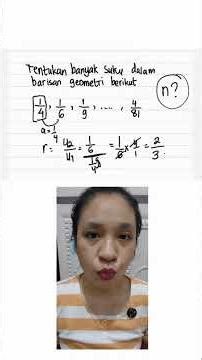 Tentukan banyak suku dalam
barisan geometri berikut
n?
1/4, 1/6, 1/9, ....., 4/81
a = 1/4
r = U2/U1 = 1/6 / 1/4 = 1/6 x 4/1 = 2/3